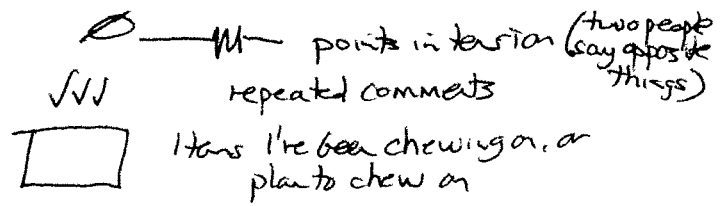 points in tension (two people
say opposite
things)
√√√ repeated comments
Items I've been chewing on, or
plan to chew on